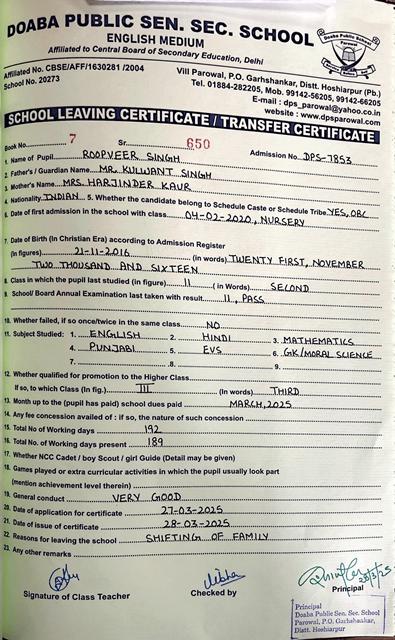 DOABA PUBLIC SEN. SEC. SCHOOL
ENGLISH MEDIUM
Affiliated to Central Board of Secondary Education, Delhi
Doaba Public School
Parowal
Affiliated No. CBSE/AFF/1630281 /2004
School No. 20273
Vill Parowal, P.O. Garhshankar, Distt. Hoshiarpur (Pb.)
Tel. 01884-282205, Mob. 99142-56205, 99142-66205
E-mail : dps_parowal@yahoo.co.in
website : www.dpsparowal.com
SCHOOL LEAVING CERTIFICATE / TRANSFER CERTIFICATE
Book No. 7 Sr. 650 Admission No. DPS-7853
1. Name of Pupil ROOPVEER SINGH
2. Father's / Guardian Name MR. KULWANT SINGH
3. Mother's Name MRS. HARJINDER KAUR
4. Nationality INDIAN 5. Whether the candidate belong to Schedule Caste or Schedule Tribe YES, OBC
6. Date of first admission in the school with class 04-02-2020, NURSERY
7. Date of Birth (In Christian Era) according to Admission Register
(in figures) 21-11-2016 (in words) TWENTY FIRST, NOVEMBER
TWO THOUSAND AND SIXTEEN
8. Class in which the pupil last studied (in figure) II (in Words) SECOND
9. School/ Board Annual Examination last taken with result II, PASS
10. Whether failed, if so once/twice in the same class NO
11. Subject Studied: 1. ENGLISH 2. HINDI 3. MATHEMATICS
4. PUNJABI 5. EVS 6. GK/MORAL SCIENCE
7. 8. 9.
12. Whether qualified for promotion to the Higher Class
If so, to which Class (In fig.) III (In Words) THIRD
13. Month up to the (pupil has paid) school dues paid MARCH, 2025
14. Any fee concession availed of : if so, the nature of such concession
15. Total No of Working days 192
16. Total No. of Working days present 189
17. Whether NCC Cadet / boy Scout / girl Guide (Detail may be given)
18. Games played or extra curricular activities in which the pupil usually look part
(mention achievement level therein)
19. General conduct VERY GOOD
20. Date of application for certificate 27-03-2025
21. Date of issue of certificate 28-03-2025
22. Reasons for leaving the school SHIFTING OF FAMILY
23. Any other remarks
28/3/25
Signature of Class Teacher Checked by Principal
Principal
Doaba Public Sen. Sec. School
Parowal, P.O. Garhshankar,
Distt. Hoshiarpur